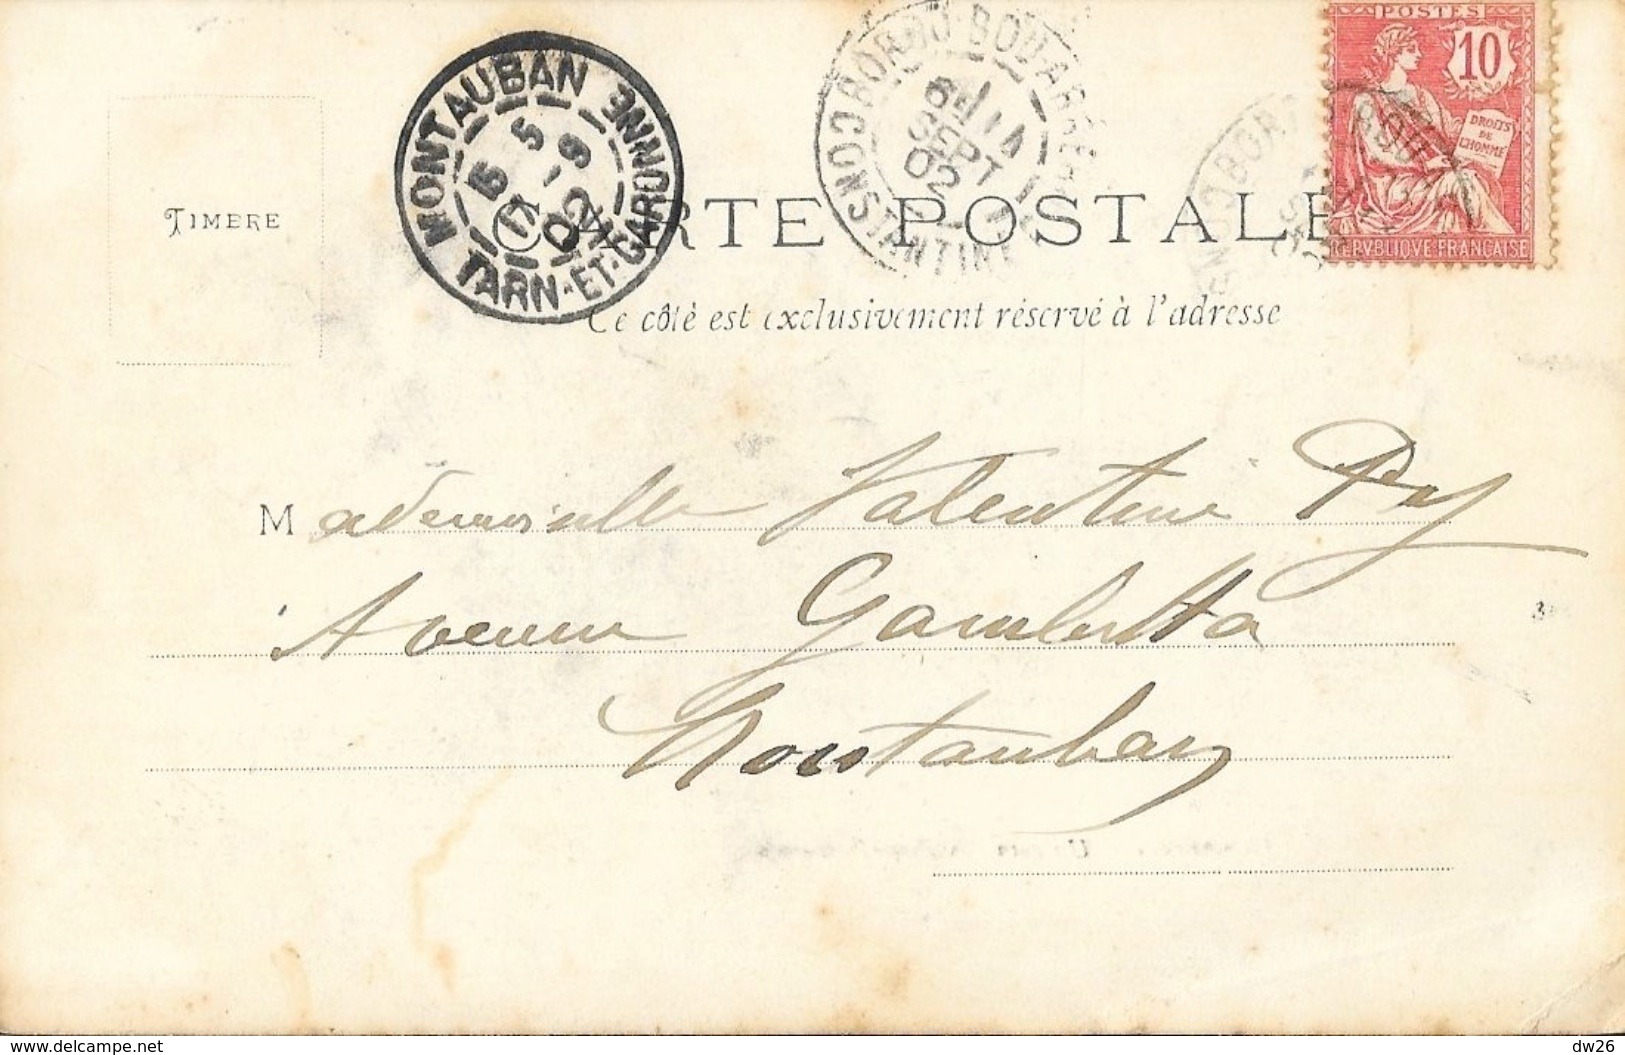 POSTES
10
DROITS
DE
L'HOMME
REPVBLIQVE FRANÇAISE
MONTAUBAN
5 5
17 - 9
02
TARN-ET-GARONNE
BORDJ-BOU
SEPT
02
CONSTANTINE
TIMBRE
CARTE POSTALE
Ce côté est exclusivement réservé à l'adresse
Mademoiselle Valentine
Avenue Gambetta
Montauban
www.delcampe.net
dw26